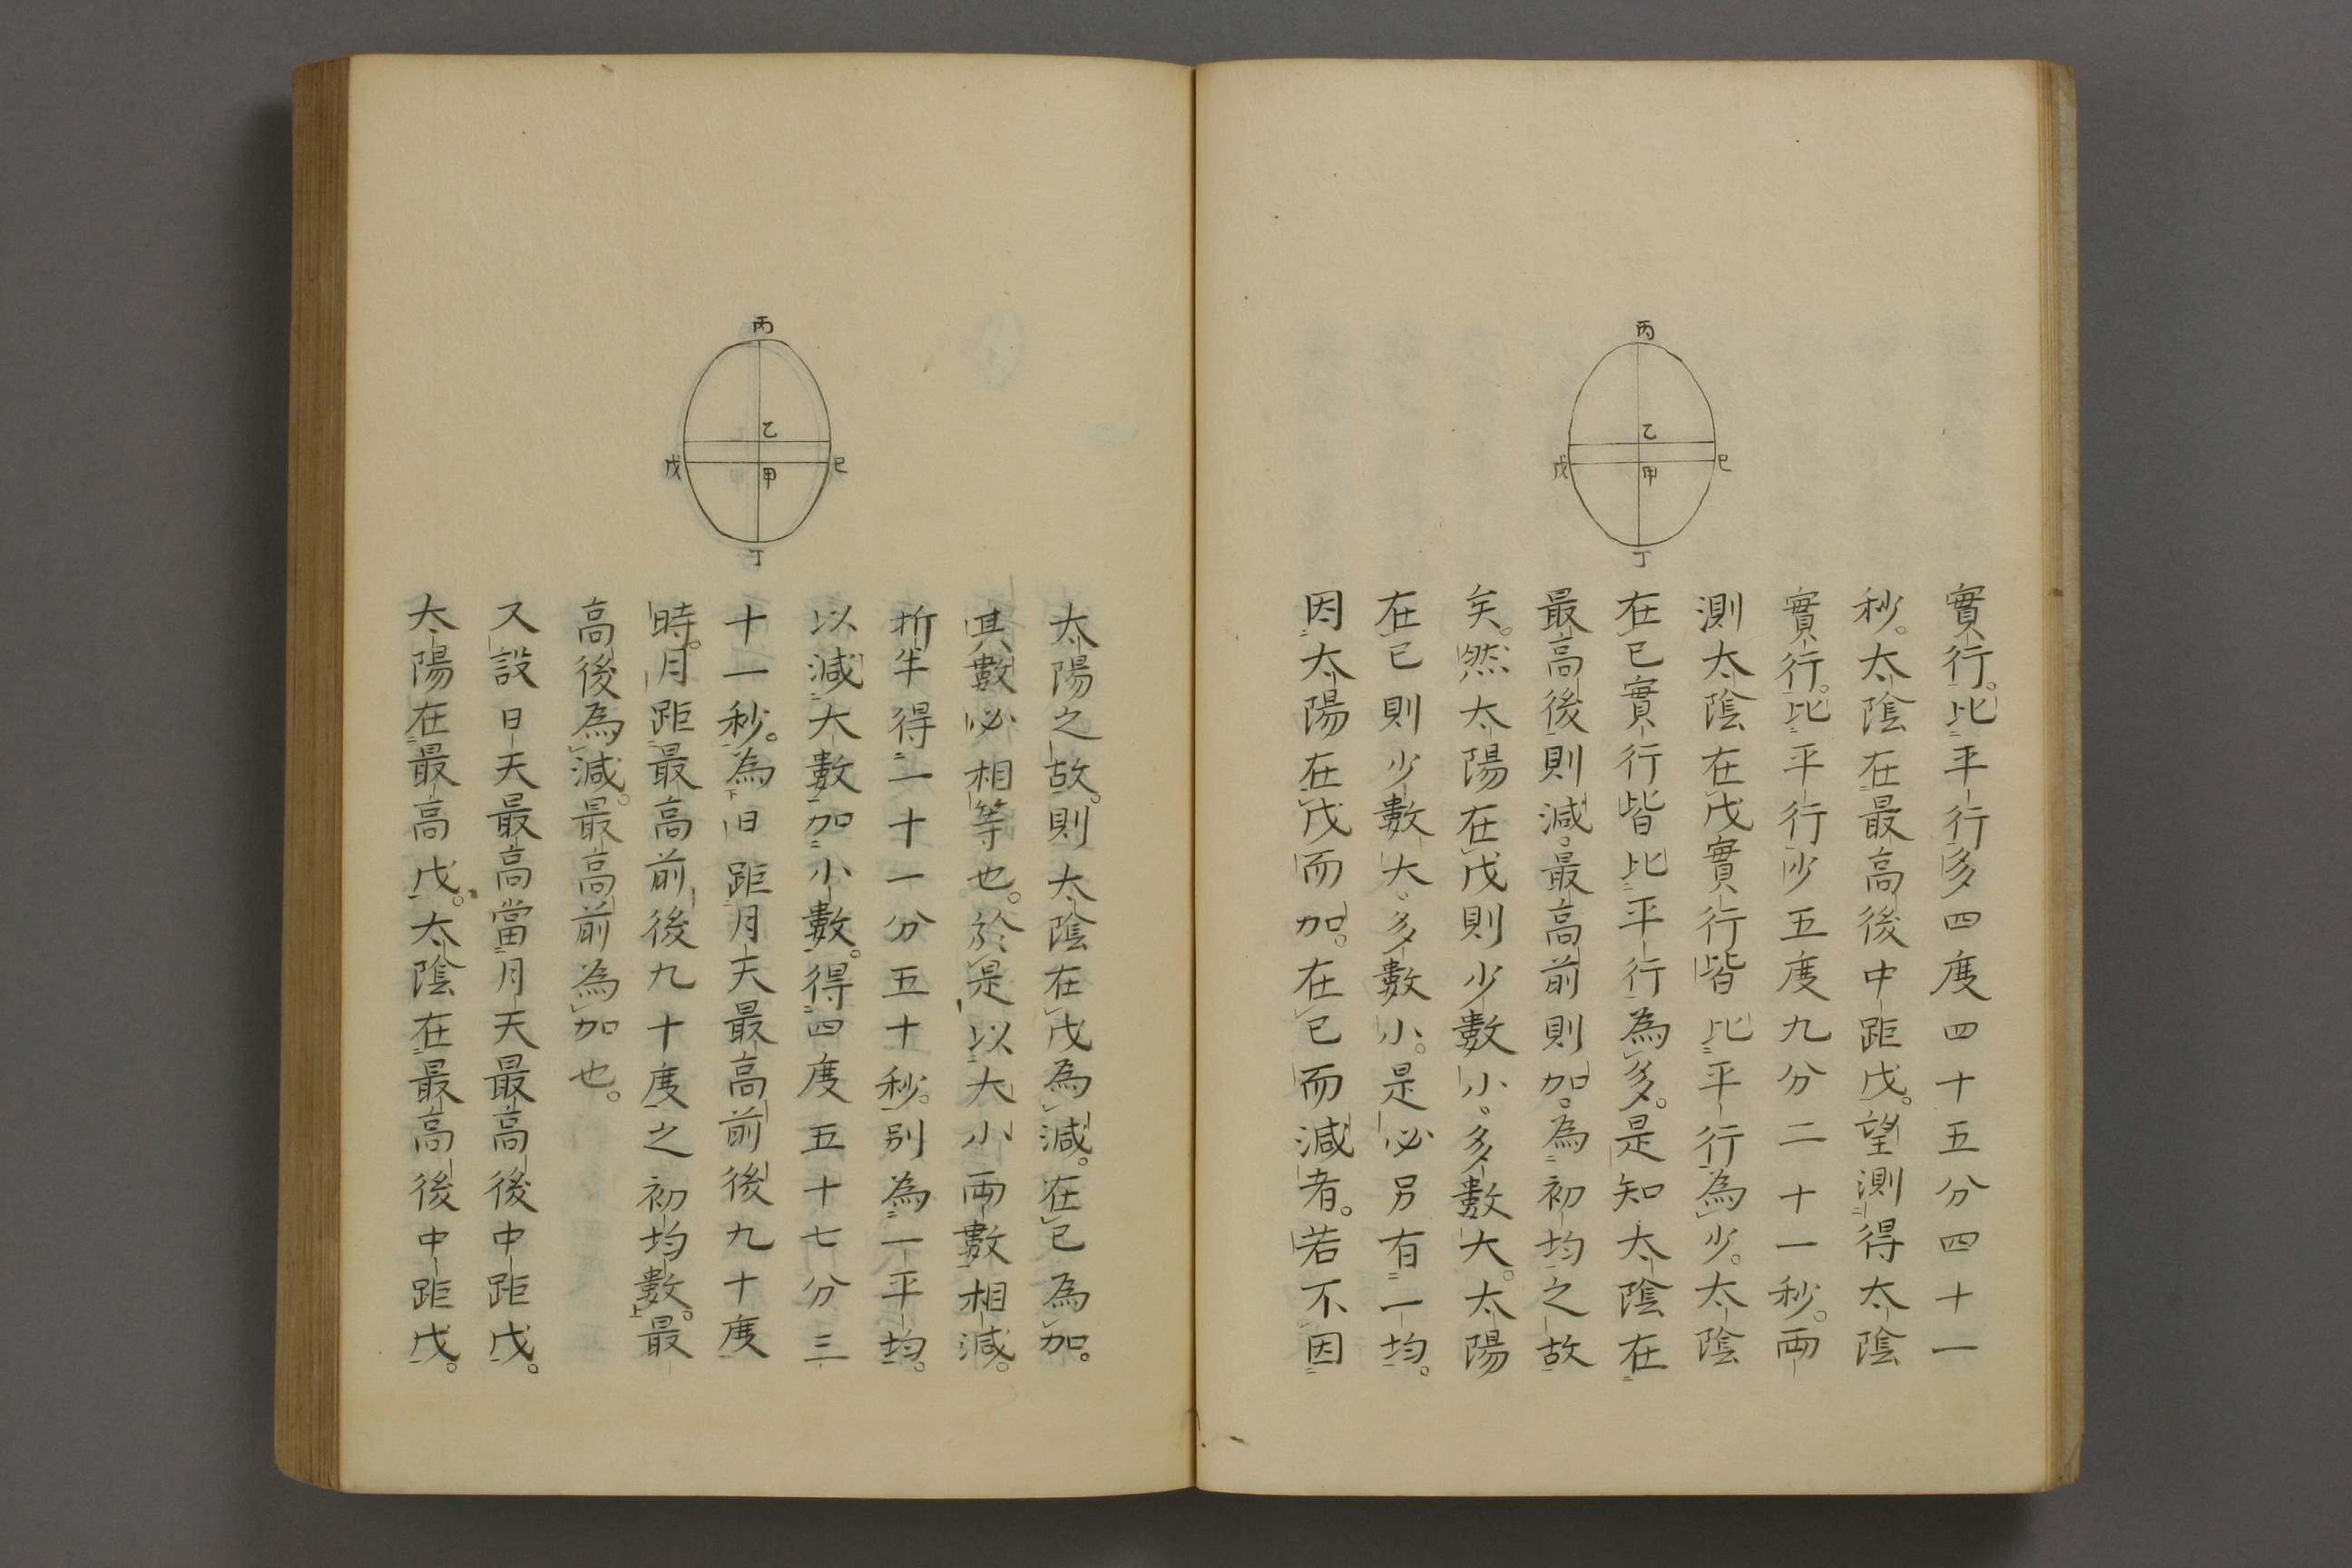 丙
乙
戊 甲 已
丁
實行。比平行多四度四十五分四十一
秒。太陰在最高後中距戊。望測得太陰
實行。比平行少五度九分二十一秒。兩
測太陰在戊實行皆比平行為少。太陰
在已實行皆比平行為多。是知太陰在
最高後則減。最高前則加。為初均之故
矣。然太陽在戊則少數小、多數大。太陽
在已則少數大、多數小。是必另有一均。
因太陽在戊而加。在已而減者。若不因
丙
乙
戊 甲 已
丁
太陽之故。則太陰在戊為減。在已為加。
其數必相等也。於是以大小兩數相減。
折半得一十一分五十秒。別為一平均。
以減大數加小數。得四度五十七分三
十一秒。為日距月天最高前後九十度
時。月距最高前後九十度之初均數。最
高後為減。最高前為加也。
又設日天最高當月天最高後中距戊。
太陽在最高戊。太陰在最高後中距戊。